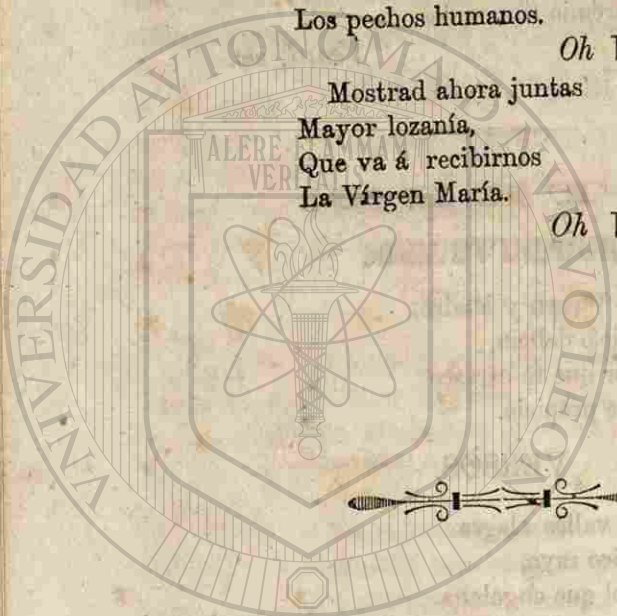 Los pechos humanos.
Oh
Mostrad ahora juntas
Mayor lozanía,
Que va á recibirnos
La Vírgen María.
Oh
UNIVERSIDAD AVTONOMA D NVEVO LEON
ALERE FLAMMAM
VERITATIS